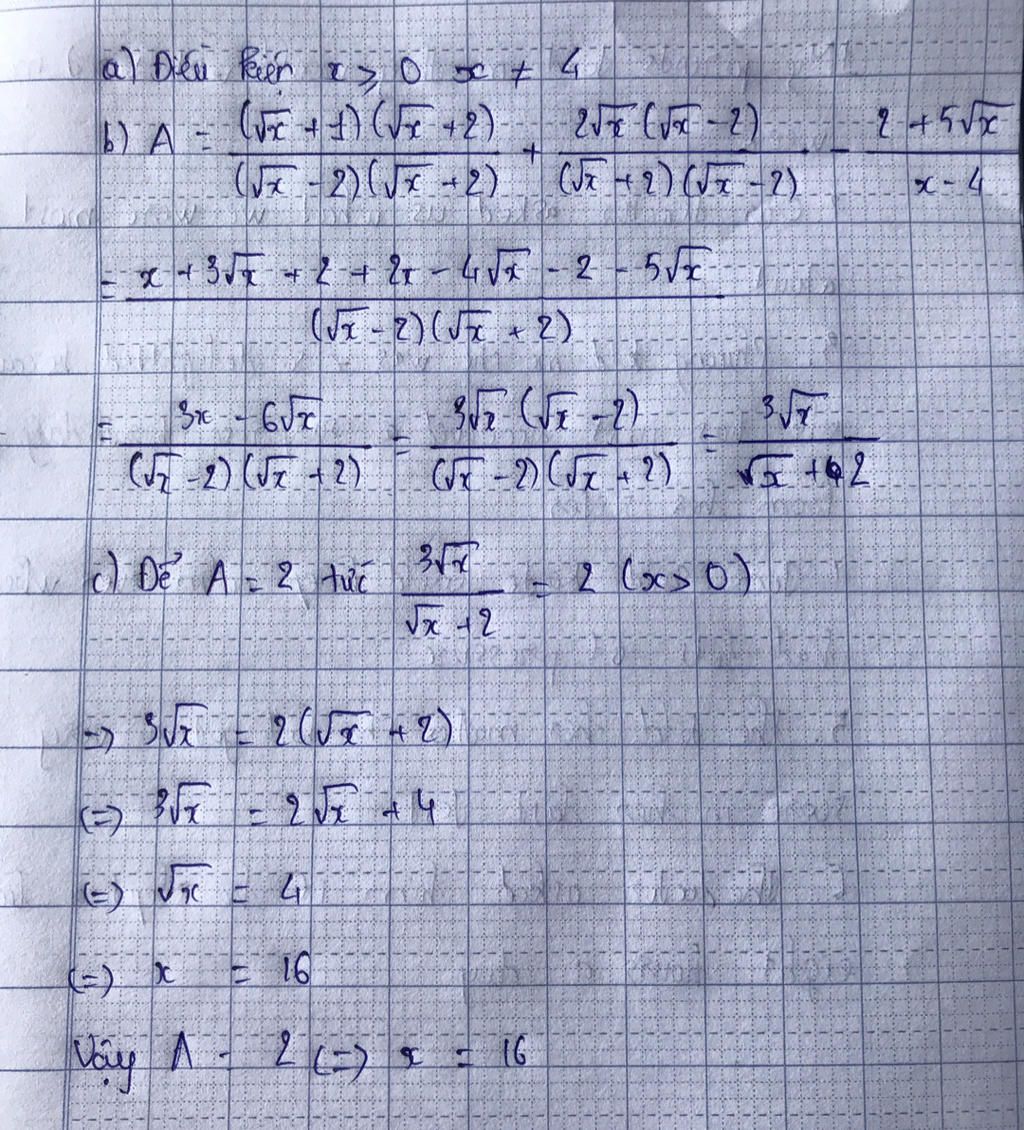 a) Điều kiện x ≥ 0 x ≠ 4
b) A = \frac{(√x + 1)(√x + 2)}{(√x - 2)(√x + 2)} + \frac{2√x (√x - 2)}{(√x + 2)(√x - 2)} - \frac{2 + 5√x}{x - 4}
= \frac{x + 3√x + 2 + 2x - 4√x - 2 - 5√x}{(√x - 2)(√x + 2)}
= \frac{3x - 6√x}{(√x - 2)(√x + 2)} = \frac{3√x (√x - 2)}{(√x - 2)(√x + 2)} = \frac{3√x}{√x + 2}
c) Để A = 2 tức \frac{3√x}{√x + 2} = 2 (x > 0)
=> 3√x = 2(√x + 2)
(=) 3√x = 2√x + 4
(=) √x = 4
(=) x = 16
Vậy A - 2 (=) x = 16